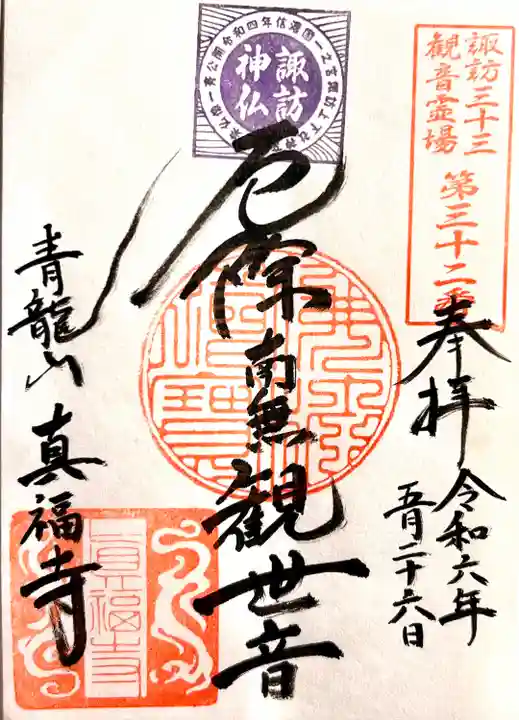 諏訪三十三
観音霊場
第三十二番
奉拝
令和六年
五月二十六日
諏訪
神仏
厄除
南無
観世音
青龍山
真福寺
真福寺